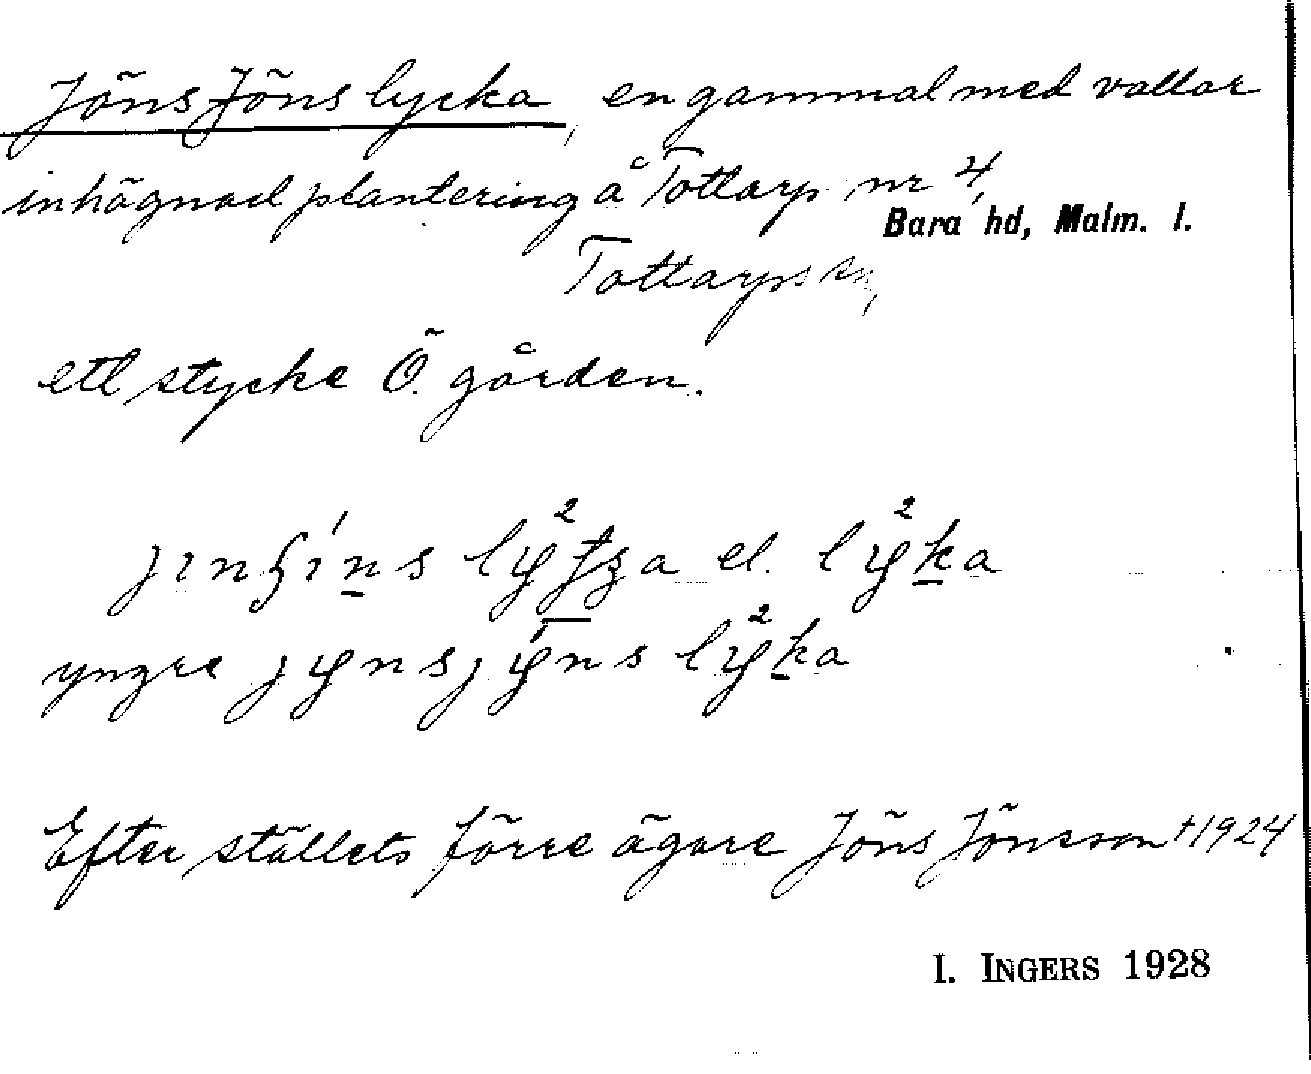 Jöns Jöns lycka, en gammal med vallar
inhägnad plantering å Tottarp nr 4,
Bara hd, Malm. l.
Tottarps sn,
ett stycke Ö. gården.
el.
yngre
Efter ställets förre ägare Jöns Jönsson †1924
I. INGERS 1928